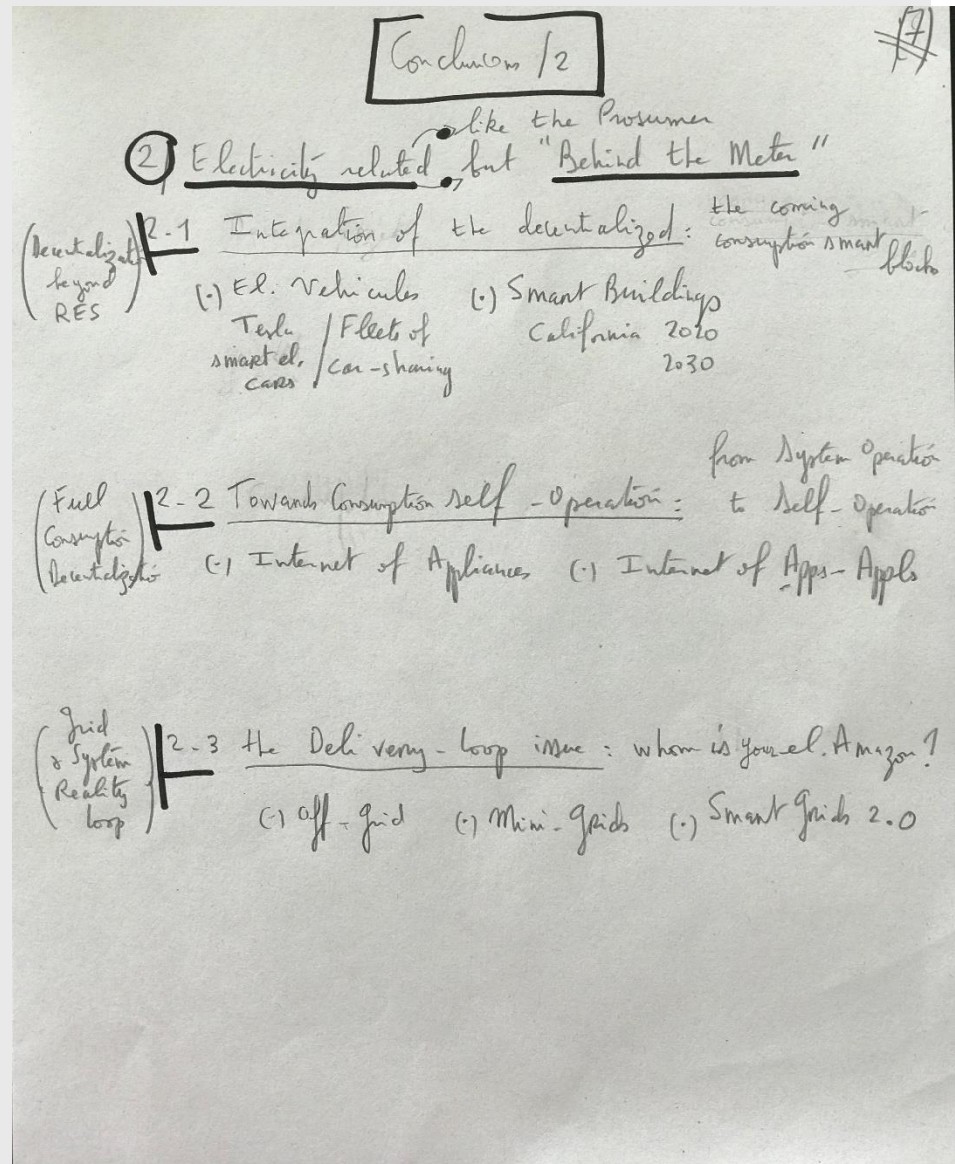 Conclusions /2
(7)
like the Prosumer
2) Electricity related, but "Behind the Meter"
(Decentralizat° beyond RES)
2-1 Integration of the decentralized: the coming consumption smart blocks
(·) El. Vehicules (·) Smart Buildings
Tesla smart el. cars / Fleets of car-sharing
California 2020
2030
(Full Consumptio Decentralizatio)
2-2 Towards Consumption self-Operation: from System Operatión to Self-Operatión
(·) Internet of Appliances (·) Internet of Apps-Appls
(Grid & System Reality loop)
2-3 the Delivery-loop issue: whom is your el. Amazon?
(·) off-grid (·) Mini-Grids (·) Smart Grids 2.0